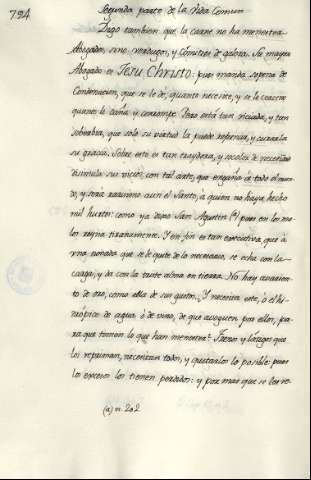 794
Segunda parte de la Vida Comun
Digo tambien que la carne no ha menester
Abogados, sino verdugos, y Cómitres de galera. Su mayor
Abogado es Jesu Christo: pues manda sopena de
Condenacion, que se le dè, quanto necesite, y se la cercene
quanto le daña, y corrompe. Pero està tan viciada, y tan
soberbia, que solo su virtud la puede refrenar, y curarla
su gracia. Sobre esto es tan traydora, y
disimula su vicio, con tal arte, que engaña à todo el mun-
do, y seria rarisimo aun el Santo, à quien no haya hecho
mil hurtos: como ya dixo San Agustin (a) pues en los ma-
los reyna tiranamente. Y en fin es tan executiva, que à
una nonada que se le quite de lo necesario, se echa con la
carga, y dà con la triste alma en tierra. No hay avarien-
to de oro, como ella de sus gustos. Y necesita este, ò el hi-
dròpico de agua ò de vino, de que aboguen por ellos, pa-
ra que tomen lo que han menester? Frenos y látigos que
los repriman, necesitan todos, y apretarlos lo posible: pues
los excesos los tienen perdidos: y por mas que se les re-
(a) n. 202